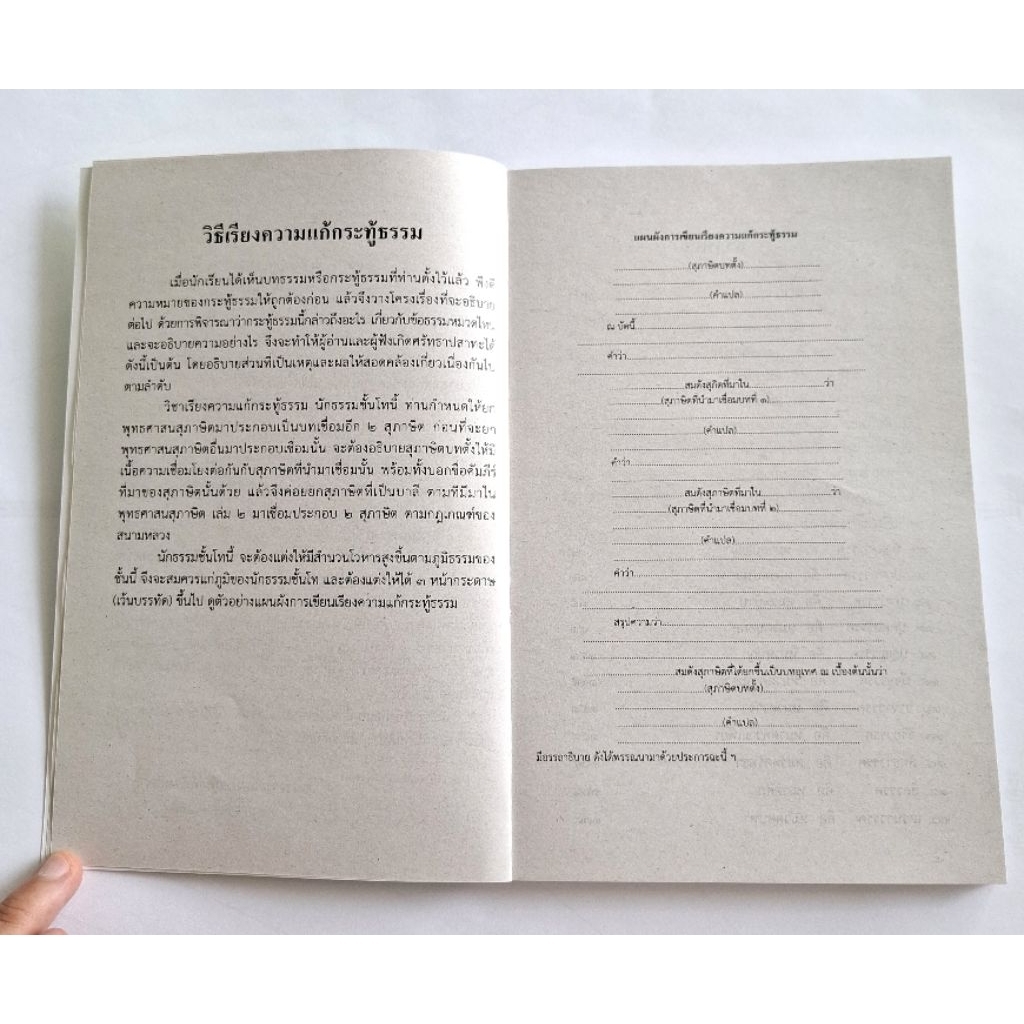 วิธีเรียงความแก้กระทู้ธรรม
เมื่อนักเรียนได้เห็นบทธรรมหรือกระทู้ธรรมที่ท่านตั้งไว้แล้ว พึงตี
ความหมายของกระทู้ธรรมให้ถูกต้องก่อน แล้วจึงวางโครงเรื่องที่จะอธิบาย
ต่อไป ด้วยการพิจารณาว่ากระทู้ธรรมนี้กล่าวถึงอะไร เกี่ยวกับข้อธรรมหมวดไหน
และจะอธิบายความอย่างไร จึงจะทำให้ผู้อ่านและผู้ฟังเกิดศรัทธาปสาทะได้
ดังนี้เป็นต้น โดยอธิบายส่วนที่เป็นเหตุและผลให้สอดคล้องเกี่ยวเนื่องกันไป
ตามลำดับ
วิชาเรียงความแก้กระทู้ธรรม นักธรรมชั้นโทนี้ ท่านกำหนดให้ยก
พุทธศาสนสุภาษิตมาประกอบเป็นบทเชื่อมอีก ๒ สุภาษิต ก่อนที่จะยก
พุทธศาสนสุภาษิตอื่นมาประกอบเชื่อมนั้น จะต้องอธิบายสุภาษิตบทตั้งให้มี
เนื้อความเชื่อมโยงต่อกันกับสุภาษิตที่นำมาเชื่อมนั้น พร้อมทั้งบอกชื่อคัมภีร์
ที่มาของสุภาษิตนั้นด้วย แล้วจึงค่อยยกสุภาษิตที่เป็นบาลี ตามที่มีมาใน
พุทธศาสนสุภาษิต เล่ม ๒ มาเชื่อมประกอบ ๒ สุภาษิต ตามกฎเกณฑ์ของ
สนามหลวง
นักธรรมชั้นโทนี้ จะต้องแต่งให้มีสำนวนโวหารสูงขึ้นตามภูมิธรรมของ
ชั้นนี้ จึงจะสมควรแก่ภูมิของนักธรรมชั้นโท และต้องแต่งให้ได้ ๓ หน้ากระดาษ
(เว้นบรรทัด) ขึ้นไป ดูตัวอย่างแผนผังการเขียนเรียงความแก้กระทู้ธรรม
แผนผังการเขียนเรียงความแก้กระทู้ธรรม
(สุภาษิตบทตั้ง)
(คำแปล)
ณ บัดนี้
คำว่า
สมดังสุภิตที่มาใน ว่า
(สุภาษิตที่นำมาเชื่อมบทที่ ๑)
(คำแปล)
คำว่า
สมดังสุภาษิตที่มาใน ว่า
(สุภาษิตที่นำมาเชื่อมบทที่ ๒)
(คำแปล)
คำว่า
สรุปความว่า
สมดังสุภาษิตที่ได้ยกขึ้นเป็นบทอุเทศ ณ เบื้องต้นนั้นว่า
(สุภาษิตบทตั้ง)
(คำแปล)
มีอรรถาธิบาย ดังได้พรรณนามาด้วยประการฉะนี้ ฯ